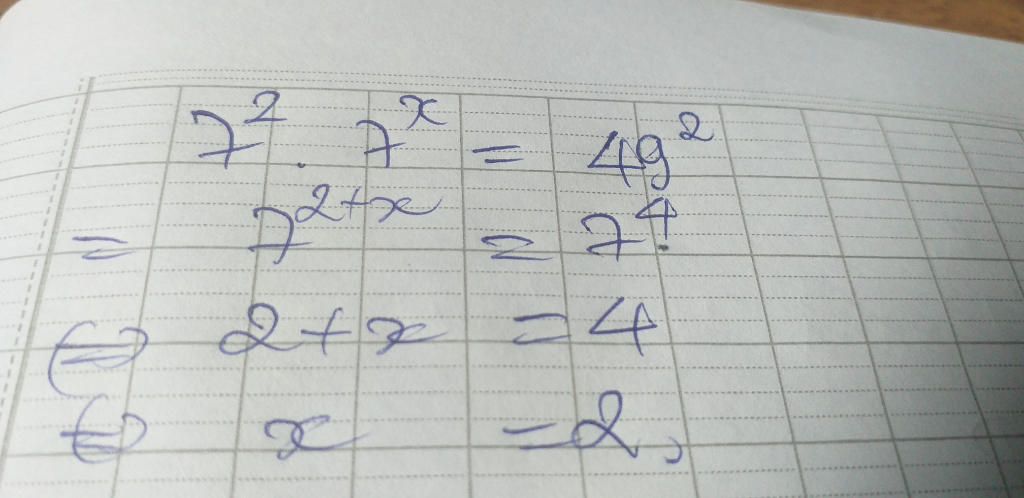 7² . 7ˣ = 49²
= 7²⁺ˣ = 7⁴
⇔ 2+x = 4
⇔ x = 2,